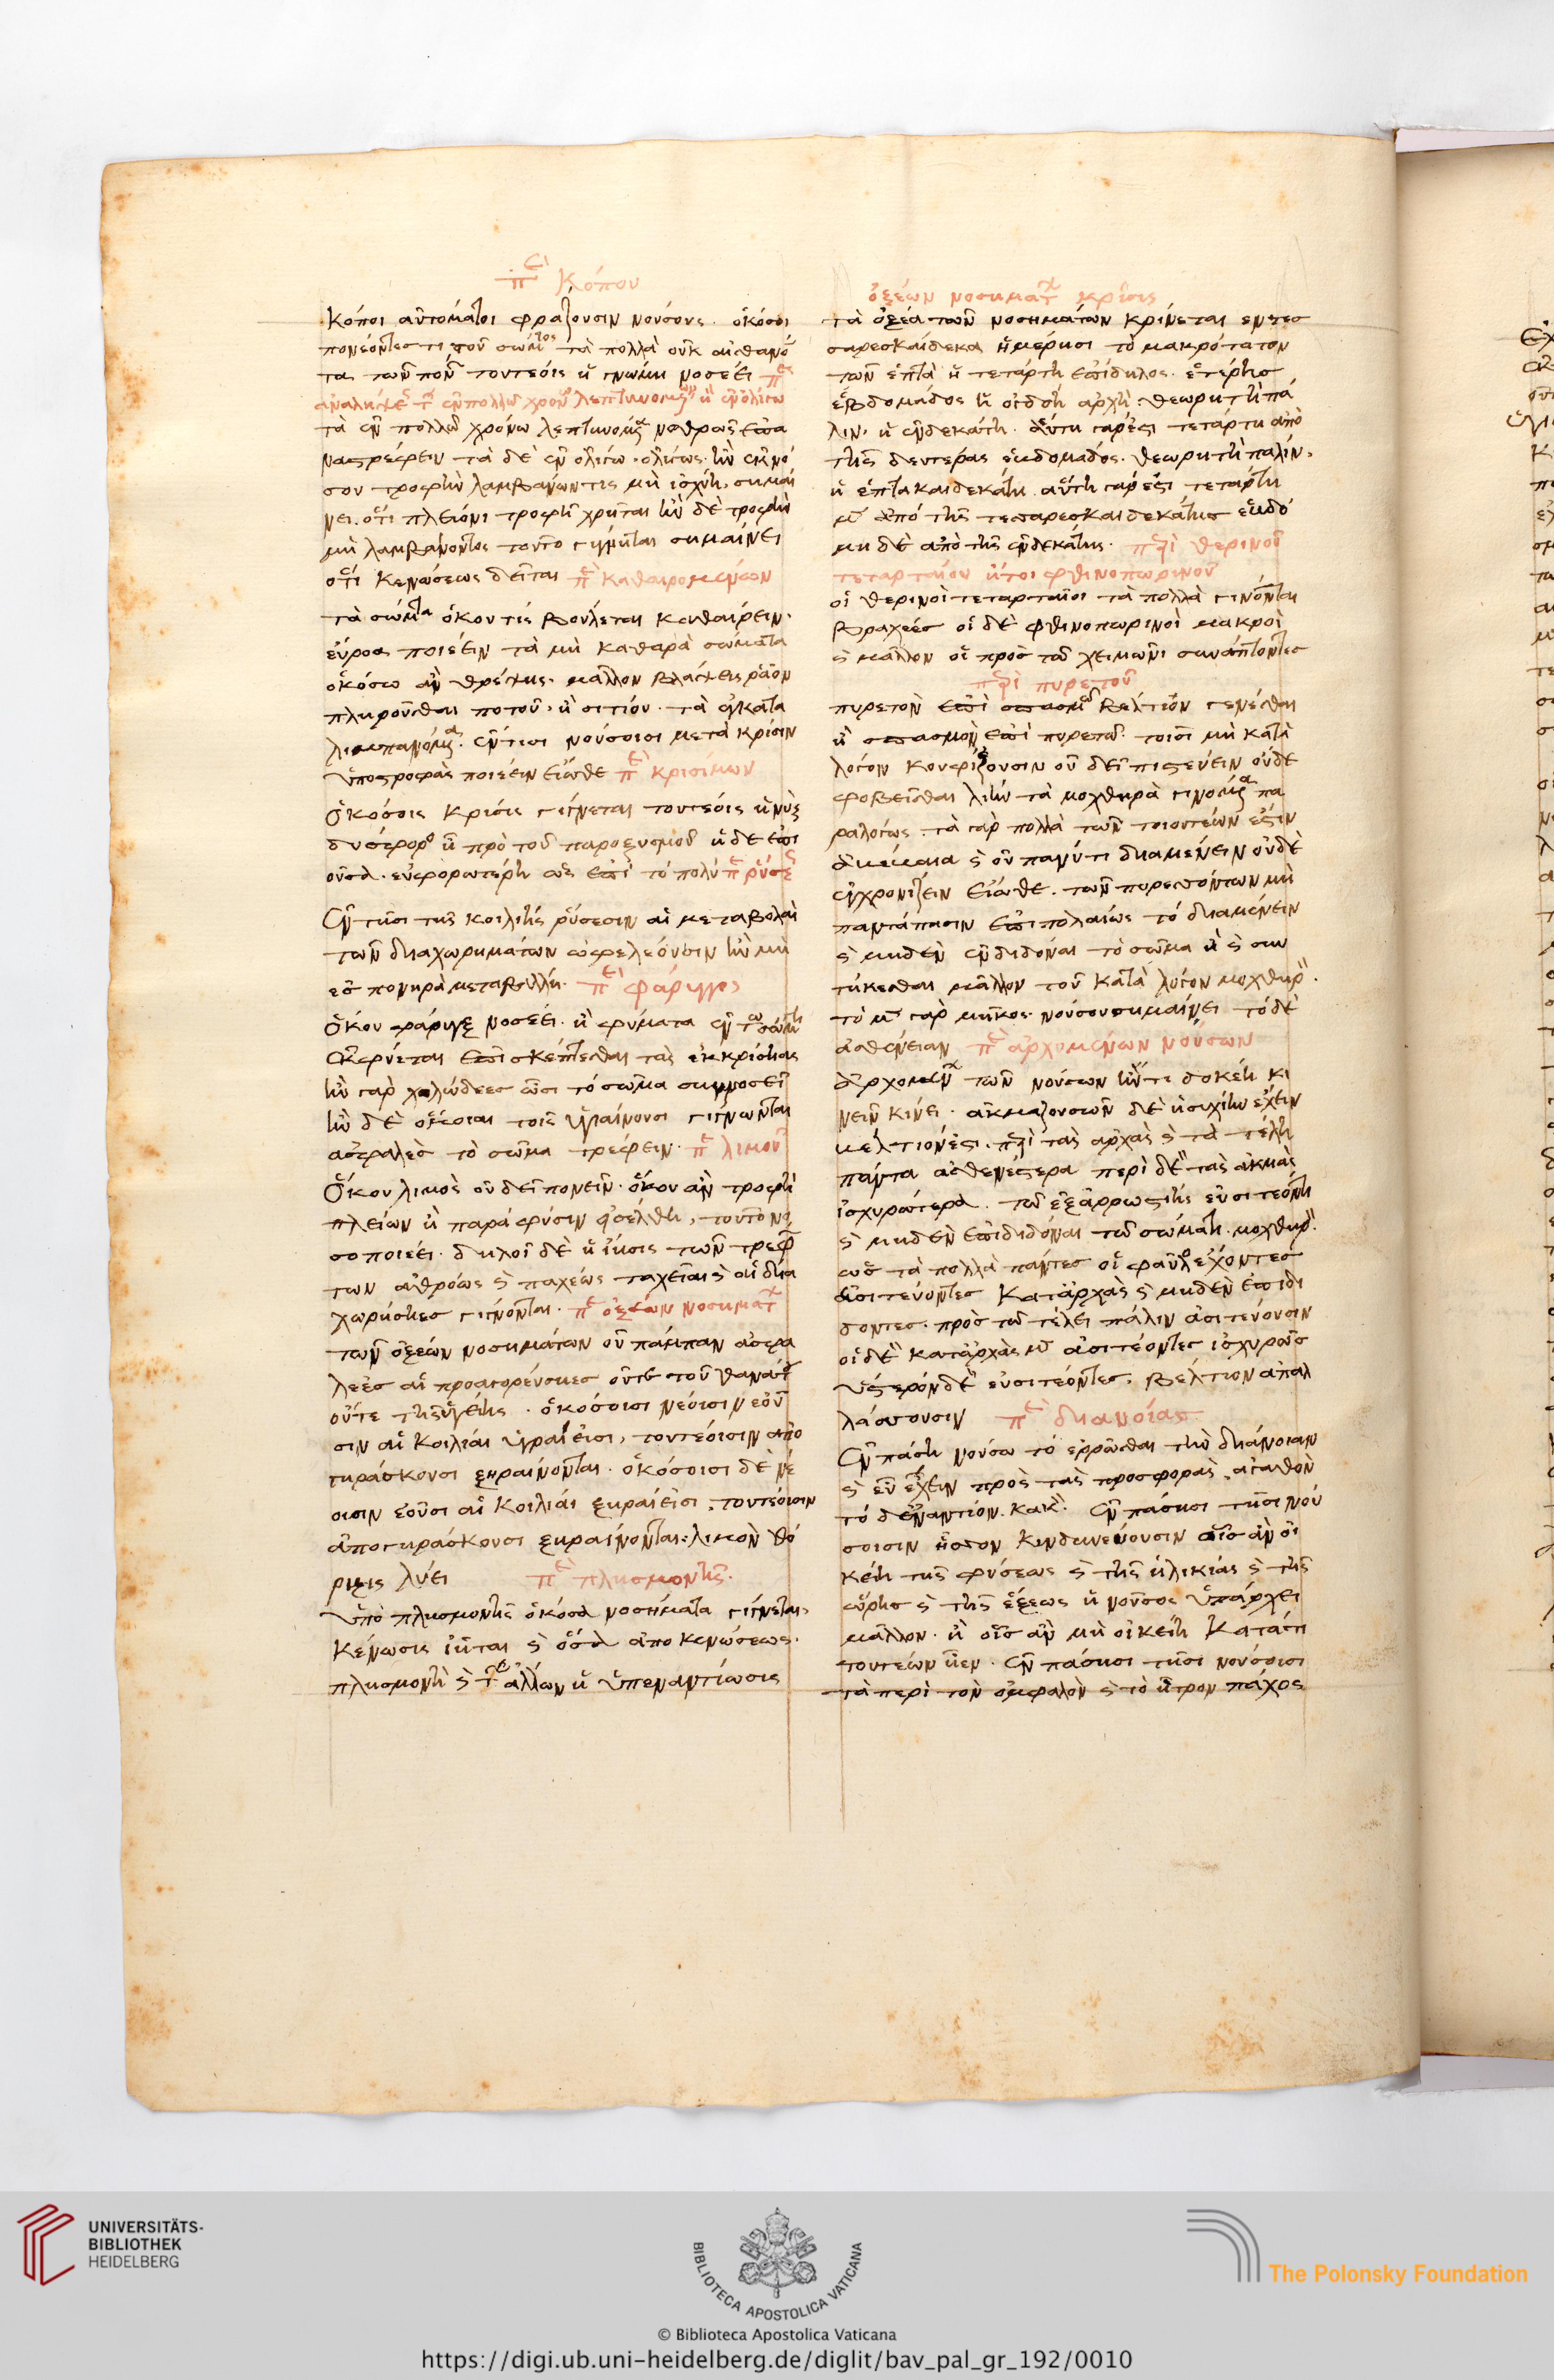 περὶ Κόπου
κόποι αὐτόματοι φράζουσιν νούσους. ὁκόσοι
πονέοντες τι τοῦ σώματος τὰ πολλὰ οὐκ αἰσθάνον
ται τῶν πόνων τουτέοις ἡ γνώμη νοσέει περὶ
τὰ ἐν πολλῶ χρόνω λεπτυνόμενα νωθρῶς ἐπα
νατρέφειν τὰ δὲ ἐν ὀλίγω. ὀλίγως. ἢν ἐκ νό
σου τροφὴν λαμβάνων τις μὴ ἰσχύη. σημαί
νει. ὅτι πλείονι τροφῆ χρῆται ἢν δὲ τροφὴν
μὴ λαμβάνοντος τοῦτο γίγνηται σημαίνει
ὅτι κενώσεως δεῖται περὶ καθαιρομένων
τὰ σώματα ὅκου τις βούλεται καθαίρειν.
εὔροα ποιέειν τὰ μὴ καθαρὰ σώματα
ὁκόσω ἂν θρέψης. μᾶλλον βλάψεις ῥᾶον
πληροῦσθαι ποτοῦ. ἢ σιτίου. τὰ ἐγκατα
λιμπανόμενα. ἐν τισι νούσοισι μετὰ κρίσιν
ὑποστροφὰς ποιέειν εἴωθε περὶ κρισίμων
Ὁκόσοις κρίσις γίγνεται τουτέοις ἡ νὺξ
δύσφορος ἡ πρὸ τοῦ παροξυσμοῦ ἡ δὲ ἐπι
οῦσα. εὐφορωτέρη ὡς ἐπὶ τὸ πολύ περὶ ῥύσεως
Ἐν τῆσι τῆς κοιλίης ῥύσεσιν αἱ μεταβολαὶ
τῶν διαχωρημάτων ὠφελέουσιν ἢν μὴ
ἐς πονηρὰ μεταβάλλη. περὶ φάρυγγος
Ὅκου φάρυγξ νοσέει. ἢ φύματα ἐν τῶ σώματι
ἐκφύεται ἐπισκέπτεσθαι τὰς ἐκκρίσηας
ἢν γὰρ χολώδεες ὦσι τὸ σῶμα συννοσεῖ
ἢν δὲ ὅμοιαι τοῖς ὑγιαίνουσι γίγνωνται
ἀσφαλὲς τὸ σῶμα τρέφειν. περὶ λιμοῦ
Ὅκου λιμὸς οὐ δεῖ πονεῖν. ὅκου ἂν τροφὴ
πλείων ἢ παρὰ φύσιν ἐσέλθη, τοῦτο νό
σο ποιέει. δηλοῖ δὲ ἡ ἴησις τῶν τρεφόν
των ἀθρόως καὶ παχέως ταχεῖαι καὶ αἱ δια
χωρήσηες γίνονται. περὶ ὀξέων νοσημάτων
τῶν ὀξέων νοσημάτων οὐ πάμπαν ἀσφα
λέες αἱ προαγορεύσηες οὔτε τοῦ θανάτου
οὔτε τῆς ὑγείης. ὁκόσοισι νέοισιν ἐοῦ
σιν αἱ κοιλίαι ὑγραί εἰσι, τουτέοισιν ἀπο
γηράσκουσι ξηραίνονται. ὁκόσοισι δὲ νέ
οισιν ἐοῦσι αἱ κοιλίαι ξηραί εἰσι. τουτέοισιν
ἀπογηράσκουσι ξηραίνονται: λιμὸν θώ
ρηξις λύει περὶ πλησμονῆς.
Ὑπὸ πλησμονῆς ὁκόσα νοσήματα γίγνεται,
κένωσις ἰῆται καὶ ὅσα ἀπὸ κενώσεως.
πλησμονὴ καὶ τῶν ἄλλων ἡ ὑπεναντίωσις
ὀξέων νοσημάτων κρίσις
τὰ ὀξέα τῶν νοσημάτων κρίνεται ἐν τεσ
σαρεσκαίδεκα ἡμέρησι τὸ μακρότατον
τῶν ἑπτὰ ἡ τετάρτη ἐπίδηλος. ἑτέρης
ἑβδομάδος ἡ ὀγδόη ἀρχὴ. θεωρητὴ πά
λιν. ἡ ἑνδεκάτη. αὕτη γάρ ἐστι τετάρτη ἀπὸ
τῆς δευτέρας ἑβδομάδος. θεωρητὴ πάλιν.
ἡ ἑπτακαιδεκάτη. αὕτη γάρ ἐστι τετάρτη
μὲν ἀπὸ τῆς τεσσαρεσκαιδεκάτης ἑβδό
μη δὲ ἀπὸ τῆς ἑνδεκάτης. περὶ θερινοῦ
τεταρταίου ἤτοι φθινοπωρινοῦ
οἱ θερινοὶ τεταρταῖοι τὰ πολλὰ γίνονται
βραχέες οἱ δὲ φθινοπωρινοὶ μακροὶ
καὶ μᾶλλον οἱ πρὸς τῶ χειμῶνι συνάπτοντες
περὶ πυρετοῦ
πυρετὸν ἐπὶ σπασμῶ βέλτιον γενέσθαι
ἢ σπασμὸν ἐπὶ πυρετῶ. τοῖσι μὴ κατὰ
λόγον κουφίζουσιν οὐ δεῖ πιστεύειν οὐδὲ
φοβεῖσθαι λίην τὰ μοχθηρὰ γινόμενα πα
ραλόγως. τὰ γὰρ πολλὰ τῶν τοιουτέων ἐστὶν
ἀβέβαια καὶ οὐ πανύτι διαμένειν οὐδὲ
ἐγχρονίζειν εἴωθε. τῶν πυρεσσόντων μὴ
παντάπασιν ἐπιπολαίως τὸ διαμένειν
καὶ μηδὲν ἐνδιδόναι τὸ σῶμα ἢ καὶ συν
τήκεσθαι μᾶλλον τοῦ κατὰ λόγον μοχθηρόν.
τὸ μὲν γὰρ μῆκος. νούσου σημαίνει τὸ δὲ
ἀσθένειαν περὶ ἀρχομένων νούσων
Ἀρχομένων τῶν νούσων ἤν τι δοκέη κι
νεῖν κίνει. ἀκμαζουσῶν δὲ ἡσυχίην ἔχειν
βέλτιόν ἐστι. περὶ τὰς ἀρχὰς καὶ τὰ τέλη
πάντα ἀσθενέστερα περὶ δὲ τὰς ἀκμὰς
ἰσχυρότερα. τῶ ἐξ ἀρρωστίης εὐσιτέοντι
καὶ μηδὲν ἐπιδιδόναι τῶ σώματι. μοχθηρόν.
ὡς τὰ πολλὰ πάντες οἱ φαύλως ἔχοντες
ἀσιτεύοντες κατἀρχὰς καὶ μηδὲν ἐπιδι
δοντες. πρὸς τῶ τέλει πάλιν ἀσιτεύουσιν
οἱ δὲ κατἀρχὰς μὲν ἀσιτέοντες ἰσχυρῶς
ὕστερον δὲ εὐσιτέοντες. βέλτιον ἀπαλ
λάσσουσιν περὶ διανοίας
Ἐν πάση νούσω τὸ ἐρρῶσθαι τὴν διάνοιαν
καὶ εὖ ἔχειν πρὸς τὰς προσφορὰς ἀγαθὸν
τὸ δἐναντίον. κακὸν. Ἐν πάσησι τῆσι νού
σοισιν ἧσσον κινδυνεύουσιν οἷς ἂν οἰ
κέη τῆς φύσεως καὶ τῆς ἡλικίας καὶ τῆς
ὥρης καὶ τῆς ἕξεως ἡ νοῦσος ὑπάρχει
μᾶλλον. ἢ οἷς ἂν μὴ οἰκέη κατά τι
τουτέων ἦεν. Ἐν πάσησι τῆσι νούσοισι
τὰ περὶ τὸν ὀμφαλὸν καὶ τὸ ἦτρον πάχος
UNIVERSITÄTS-
BIBLIOTHEK
HEIDELBERG
BIBLIOTECA APOSTOLICA VATICANA
The Polonsky Foundation
© Biblioteca Apostolica Vaticana
https://digi.ub.uni-heidelberg.de/diglit/bav_pal_gr_192/0010